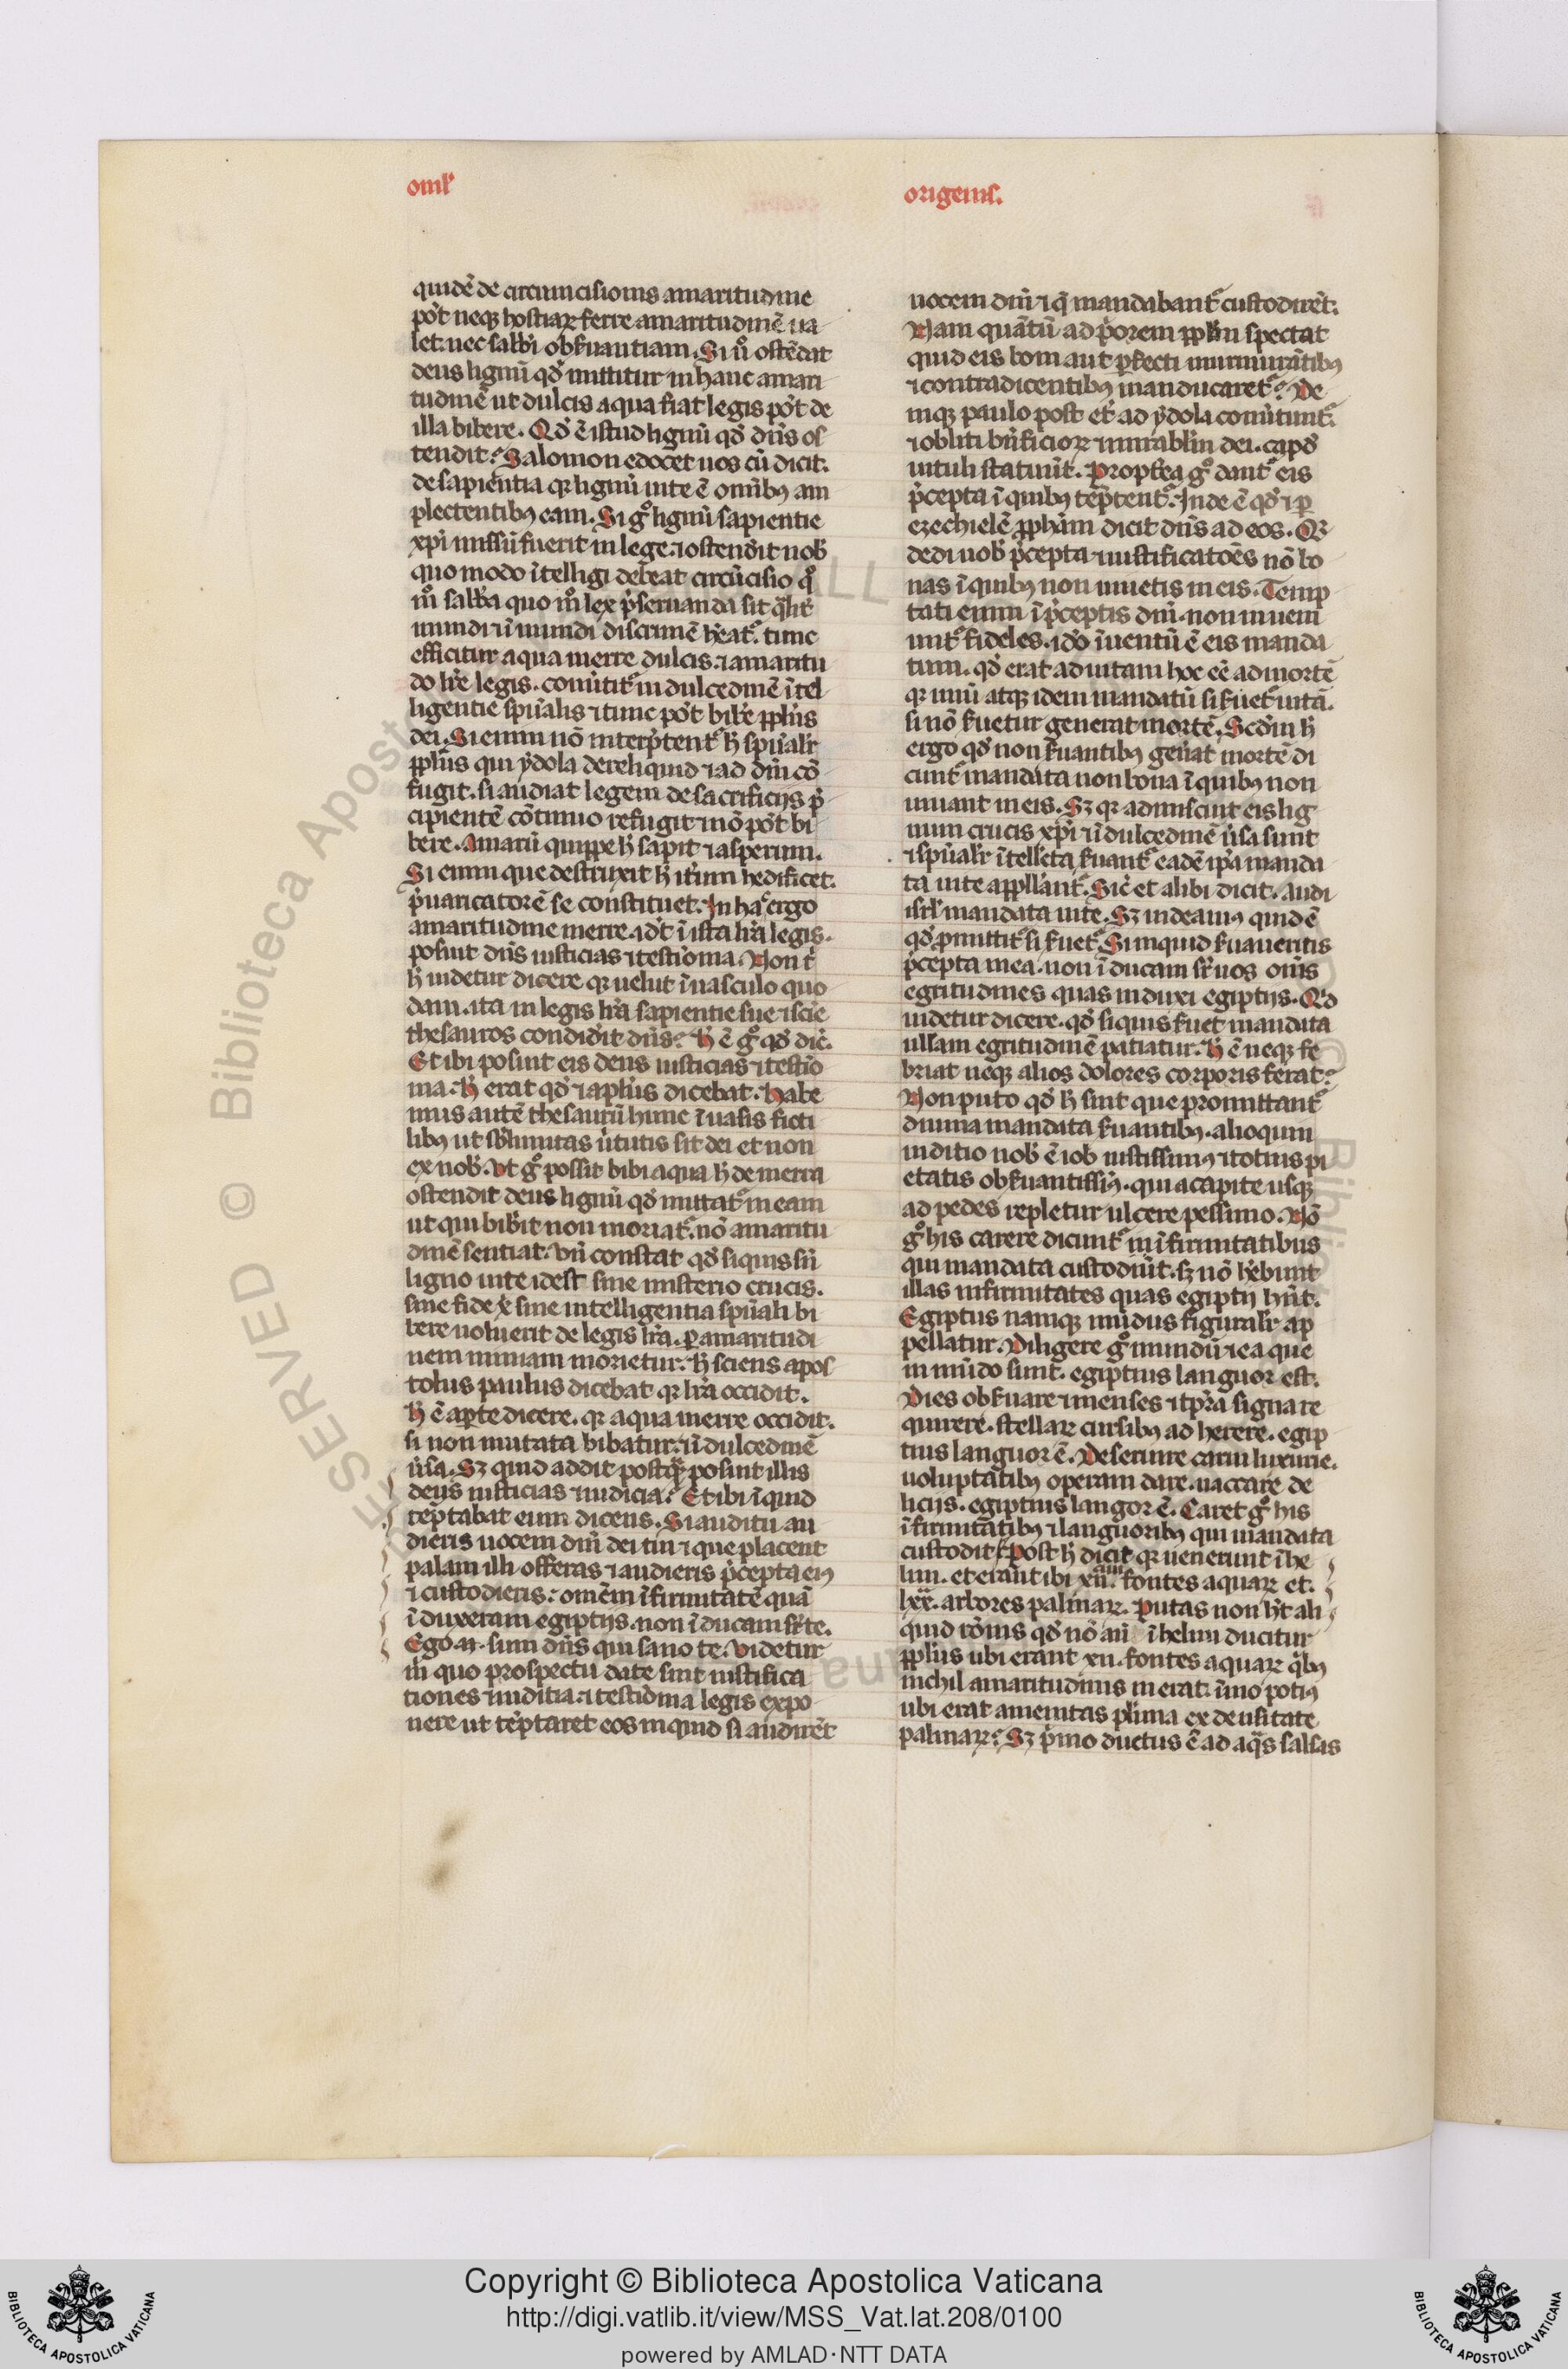 oml'
origenis.
quidē de circumcisionis amaritudine
pōt neqȝ hostiaꝝ ferre amaritudinē ua
let. nec sabb'i obs̄uantiam. Si ů ostēdat
deus lignū qd' mittitur in hanc amari
tudinē ut dulcis aqua fiat legis pōt de
illa bibere. Qd' ē istud lignū qd' dn̄s os
tendit? Salomon edocet nos cū dicit.
de sapientia qꝛ lignū uite ē omībꝰ am
plectentibꝰ eam. Si gͦ lignū sapientie
xp̄i missū fuerit in lege. ⁊ ostend'it nob'
quo modo ītelligi debeat circūcisio qͦ
mͦ sabb'a quo mͦ lex p̄seruanda sit
mundi ⁊ īmundi discrimē h'eat'. tunc
efficitur aqua merre dulcis. ⁊ amaritu
do lr̄e legis. conūtit' in dulcedinē ītel
ligentie spūalis ⁊ tunc pōt bib'e ppl'us
dei. Si enim nō interp̄tent' h' spūalr̄
ppl'us qui ydola dereliquid ⁊ ad dn̄m cō
fugit. si audiat legem de sacrificijs p̄
cipientē cōtinuo refugit ⁊ nō pōt bi
bere. Amarū quippe h' sapit ⁊ asperum.
Si enim que destruxit h' it'um hedificet.
p̄uaricatorē se constituet. In hac ergo
amaritudine merre. id'ē ī ista lr̄a legis.
posuit dn̄s iusticias ⁊ testīonia. Non t'
h' uidetur dicere qꝛ uelut ī uasculo quo
dam. ita in legis lr̄a sapientie sue ⁊ scīe
thesauros condid'it dn̄s? h' ē gͦ qd' dic̄.
Et ibi posuit eis deus iusticias ⁊ testīo
nia. h' erat qd' ⁊ apl'us dicebat. habe
mus autē thesaurū hunc ī uasis ficti
libꝰ ut sb'limitas ūtutis sit dei et non
ex nob'. Vt gͦ possit bibi aqua h' de merra
ostendit deus lignū qd' mittat' in eam
ut qui bib'it non moriat'. nō amaritu
dinē sentiat. Vn̄ constat qd' siquis sn̄
ligno uite idest sine misterio crucis.
sine fide x̄ sine intelligentia spūali bi
bere uoluerit de legis lr̄a. ꝑ amaritudi
nem nimiam morietur. h' sciens apos
tolus paulus dicebat qꝛ lr̄a occidit.
h' ē aꝑte dicere. qꝛ aqua merre occidit.
si non mutata bibatur. ⁊ ī dulcedinē
ūsa. Sȝ quid addit postqȝ posuit illis
deus iusticias ⁊ iudicia? Et ibi īquid
tēptabat eum dicens. Si auditu au
dieris uocem dn̄i dei tui ⁊ que placent
palam illi offeras ⁊ audieris p̄cepta eiꝰ
⁊ custodieris: omēm īfirmitatē quā
ī duxeram egiptijs. non ī ducam sr̄ te.
Ego .n. sum dn̄s qui sano te. Videtur
m̄ quo prospectu date sint iustifica
tiones ⁊ iuditia. ⁊ testīonia legis expo
nere ut tēptaret eos inquid si audirēt
uocem dn̄i ⁊ q̄ mandabant' custodirēt.
Nam quātū ad p̄orem ppl'm spectat
quid eis boni aut ꝑfecti murmurātibꝰ
⁊ contradicentibꝰ manducaret'? De
inqȝ paulo post et' ad ydola conūtunt'.
⁊ obliti bn̄ficioꝝ ⁊ mirabl'm dei. capd'
uituli statuūt. Propt'ea gͦ dant' eis
p̄cepta ī quibꝰ tēptent'. Inde ē qd' ⁊ ꝑ
ezechielē ꝓpham dicit dn̄s ad eos. Qꝛ
dedi uob' p̄cepta ⁊ iustificatōes nō bo
nas ī quibꝰ non uiuetis in eis. Temp
tati enim ī p̄ceptis dn̄i. non inueni
unt' fideles. id'o īuentū ē eis manda
tum. qd' erat ad uitam hoc eē ad mortē
qꝛ unū atqȝ idem mandatū si s̄uet' uitā.
si nō s̄uetur generat mortē. Scd'm h'
ergo qd' non s̄uantibꝰ gen̄at mortē di
cunt' mandata non bona ī quibꝰ non
uiuant in eis. Sȝ qꝛ admiscuit eis lig
num crucis xp̄i ⁊ ī dulcedinē ūsa sunt
⁊ spūalr̄ ītell'cta s̄uant' eadē ip̄a manda
ta uite appll'ant'. Sic̄ et alibi dicit. Audi
isrl' mandata uite. Sȝ uideamꝰ quid ē
qd' ꝓmittit' si s̄uet'. Si inquid s̄uaueritis
p̄cepta mea. non ī ducam sr̄ uos omīs
egritudines quas induxi egiptijs. Qd'
uidetur dicere. qd' siquis s̄uet mandata
ullam egritudinē patiatur. h' ē neqȝ fe
briat neqȝ alios dolores corporis ferat?
Non puto qd' h' sint que promittant'
diuina mandata s̄uantibꝰ. alioquin
inditio nob' ē iob iustissimꝰ ⁊ totius pi
etatis obs̄uantissiꝰ. qui a capite usqȝ
ad pedes repletur ulcere pessimo. Nō
gͦ his carere dicunt' in īfirmitatibus
qui mandata custodiūt. sȝ nō h'ebunt
illas infirmitates quas egiptij hn̄t.
Egiptus namqȝ mūdus figuralr̄ ap
pellatur. Diligere gͦ mundū ⁊ ea que
in mūdo sunt. egiptius languor est.
Dies obs̄uare ⁊ menses ⁊ tp̄ra signa re
quirere. stellaꝝ cursibꝰ ad herere. egip
tius languor ē. Deseruire carni luxurie.
uoluptatibꝰ operam dare. uaccare de
licijs. egiptius langor ē. Caret gͦ his
īfirmitatibꝰ ⁊ languoribꝰ qui mandata
custodit. Post h' dicit qꝛ uenerunt ī he
lim. et erant ibi xii. fontes aquaꝝ et.
lxx. arbores palmaꝝ. Putas non h't ali
quid rōnis qd' nō an̄ ī helim ducitur
ppl'us ubi erant xii. fontes aquaꝝ qͥbꝰ
nichil amaritudinis inerat. īmo potiꝰ
ubi erat amenitas pl'ima ex densitate
palmaꝝ? Sȝ p̄mo ductus ē ad aq̄s salsas
Copyright © Biblioteca Apostolica Vaticana
http://digi.vatlib.it/view/MSS_Vat.lat.208/0100
powered by AMLAD·NTT DATA